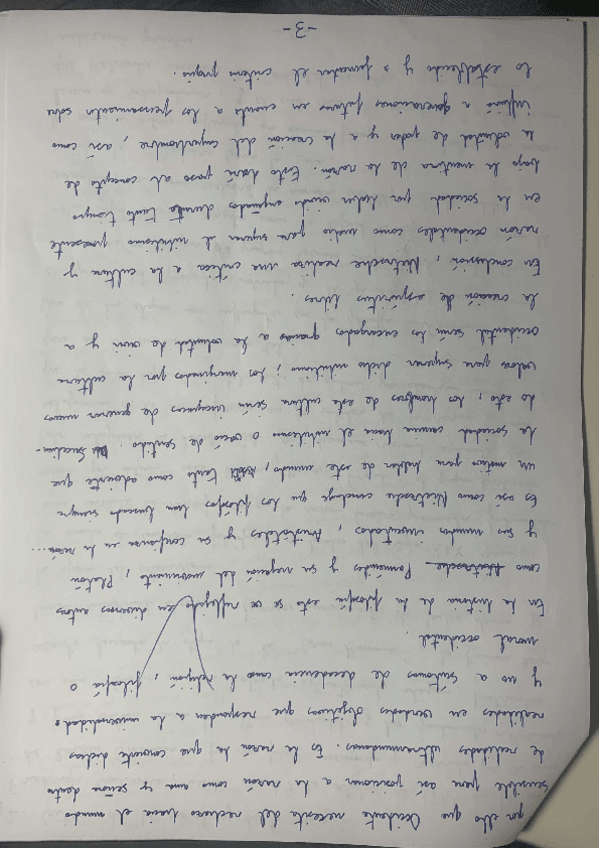 por ello que Occidente necesita del rechazo hacia el mundo
sensible para así posicionar a la razón como ama y señora dentro
de realidades ultramundanas. Es la razón la que convierte dichas
realidades en verdades objetivas que responden a la universalidad
y no a síntomas de decadencia como la religión, filosofía o
moral occidental.
En la historia de la filosofía esto se ve reflejado en diversos autores
como Parménides y su negación del movimiento, Platón
y sus mundos inventados, Aristóteles y su confianza en la razón...
Es así como Nietzsche concluye que los filósofos han buscado siempre
un motivo para hablar de este mundo, tanto como advierte que
la sociedad camina hacia el nihilismo o vacío de sentido. Sucedien-
do esto, los hombres de esta cultura serán incapaces de generar nuevos
valores para superar dicho nihilismo; los marginados por la cultura
occidental serán los encargados gracias a la voluntad de vivir y a
la creación de espíritus libres.
En conclusión, Nietzsche realiza una crítica a la cultura y
razón occidentales como medio para superar el nihilismo presente
en la sociedad por haber vivido engañados durante tanto tiempo
bajo la mentira de la razón. Esto dará paso al concepto de
la voluntad de poder y a la creación del superhombre, así como
influirá a generaciones futuras en cuanto a los pensamientos sobre
lo establecido y a fomentar el criterio propio.
-3-